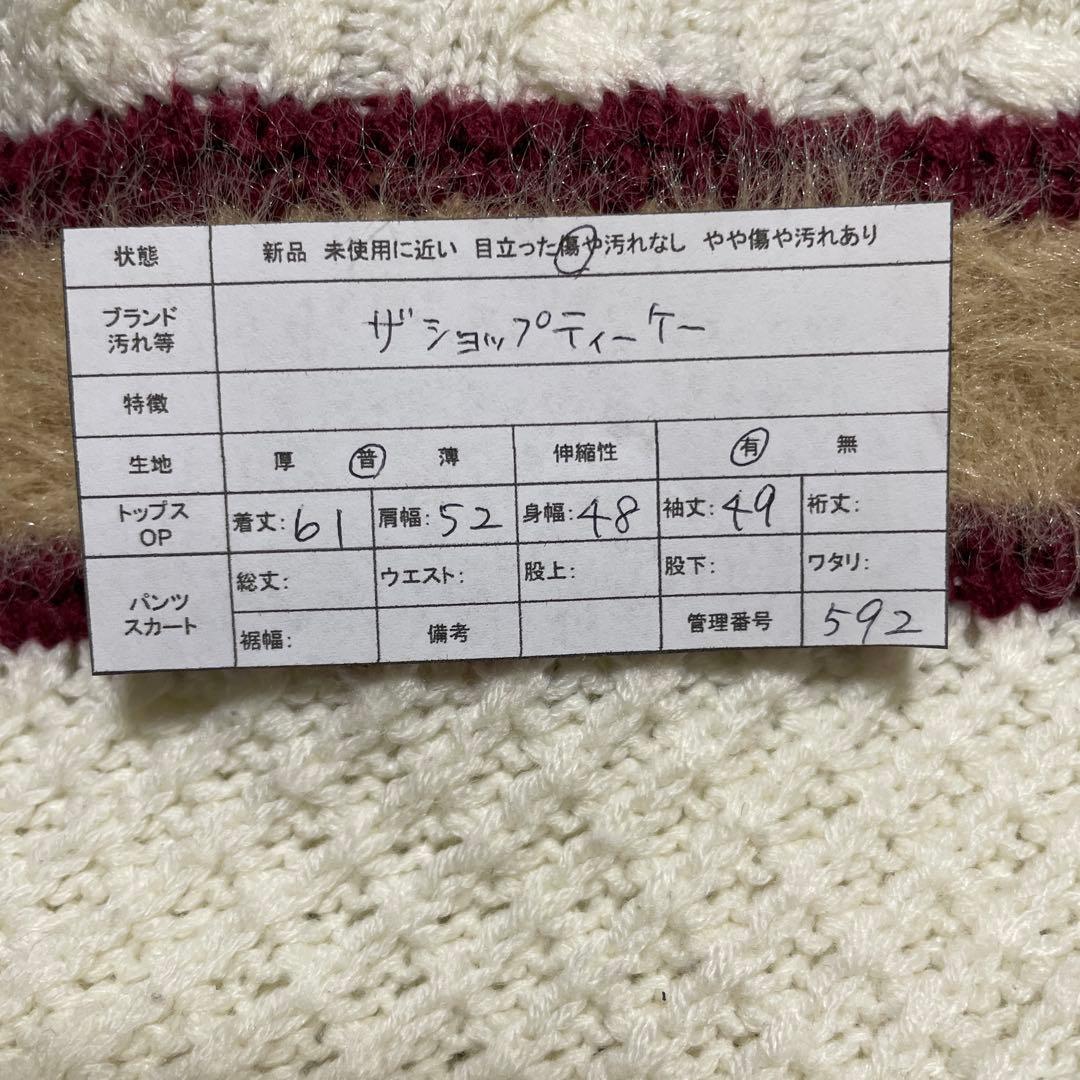 状態 新品 未使用に近い 目立った傷や汚れなし やや傷や汚れあり
ブランド
汚れ等 ザショップティーケー
特徴
生地 厚 普 薄 伸縮性 有 無
トップス
OP 着丈:61 肩幅:52 身幅:48 袖丈:49 裄丈:
パンツ
スカート 総丈: ウエスト: 股上: 股下: ワタリ:
裾幅: 備考 管理番号 592